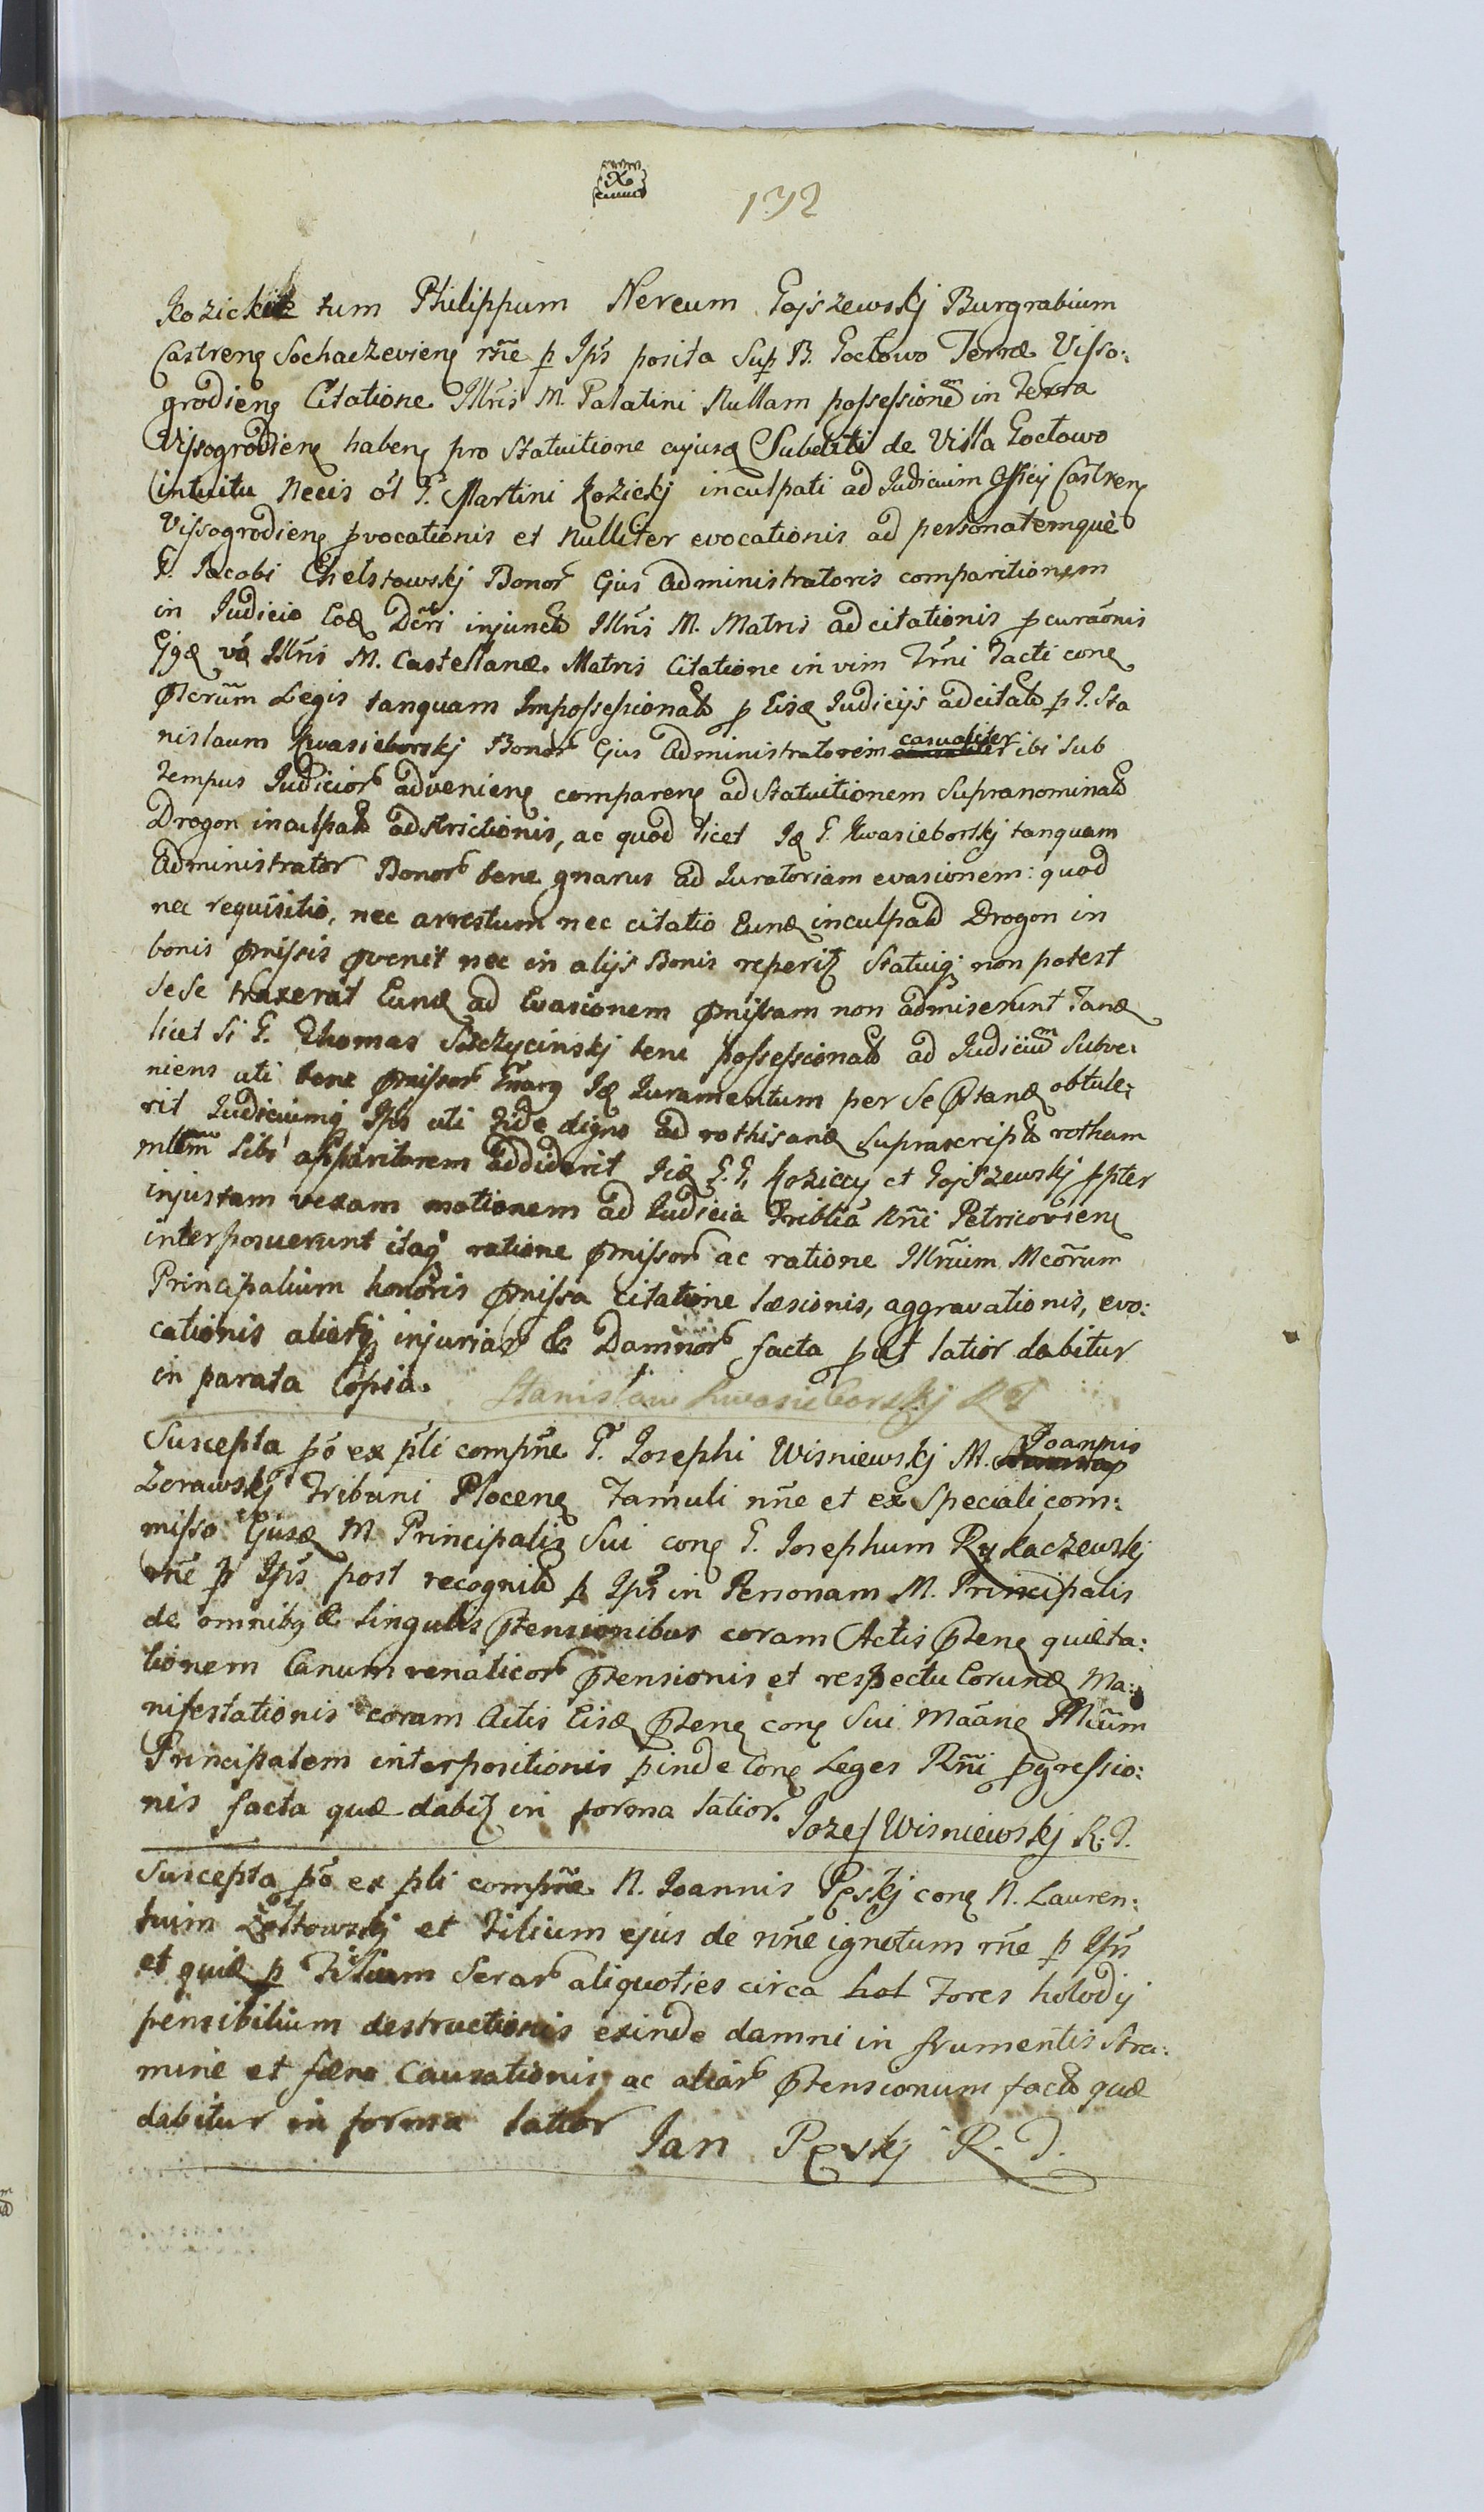 X
192
Kozickie tum Philippum Nereum Gojszewskj Burgrabium
Castren Sochaczevien rñe p Ips posita Sup B. Goctowo Terræ Visso:
grodien Citatione Illris M. Palatini Nullam possessionem in Terra
Vissogrodien haben pro Statuitione cujusd Subditi de Villa Goctowo
intuitu Necis ol G. Martini Kozickj inculpati ad Judicium Officij Castren
Vissogrodien pvocationis et Nulliter evocationis ad personatemque
G. Jacobi Chelstowskj Bonor Ejus Administratoris comparitionem
in Judicio Eod Dcri injunct Illris M. Matris adcitationis pcuraonis
Ejqd vo Illris M. Castellanæ Matris Citatione in vim Trni Tacti con
Pterum Legis tanquam Impossessionat p Eisd Judicijs adcitat p G. Sta
nislaum Kwasieborskj Bonor Ejus Administratorem casualiter ibi sub
tempus Judicior advenien comparen ad Statuitionem Supranominat
Drogon inculpat adstrictionis, ac quod licet Id G. Kwasieborskj tanquam
Administrator Bonor bene gnarus ad Juratoriam evasionem: quod
nec requisitio, nec arrestum nec citatio Eund inculpat Drogon in
bonis pmissis pvenit nec in alijs Bonis reperit Statuiq non potest
sese traxerat Eund ad Evasionem pmissam non admiserunt Tand
licet Si G. Thomas Szczycinskj bene possessionat ad Judicium Subve:
niens uti bene pmissor Gnarg Id Juramentum per Se Pstand obtule:
rit Judiciumq Ips uti Fide digno ad rothisand suprascript rotham
mlem sibi apparitorem addiderit Iid G.G. Koziccy et Gojszewskj ppter
injustam vexam motionem ad Judicia Triblia Rñi Petricovien
interposuerunt itaq ratione pmissor ac ratione Illrium Mcorum
Principalium honoris pmissa citatione læsionis, aggravationis, evo:
cationis aliarq injuriar & Damnor facta put latior dabitur
in parata Copia. Stanislaw Kwasieborskj R T
Suscepta po ex pli compne G. Josephi Wisniewskj M. Joannis
Zorawskj Tribuni Plocen Famuli nne et ex Speciali com:
misso Ejusd M Principalis Sui con G. Josephum Rykaczewskj
rñe p Ips post recognit p Ips in Personam M. Principalis
de omnibq & Singulis Ptensionibus coram Actis Pten quieta:
tionem Canum venaticor Ptensionis et respectu Eorund Ma:
nifestationis coram Actis Eisd Pten con Sui Maan Mcum
Principalem interpositionis pinde Con Leges Rñi pgressio:
nis facta quæ dabit in forma latior. Jozef Wisniewskj R. T.
Suscepta po ex pli compne N. Joannis Pęskj con N. Lauren:
tium Zołtowskj et Filium ejus de nne ignotum rñe p Ips
et quid p Filium Serar aliquoties circa hol Fores holodij
pensibilium destructionis exinde damni in frumentis Stra:
mine et fæno Causationis ac aliar Ptensionum fact quæ
dabitur in forma latior Jan Pęskj R. T.